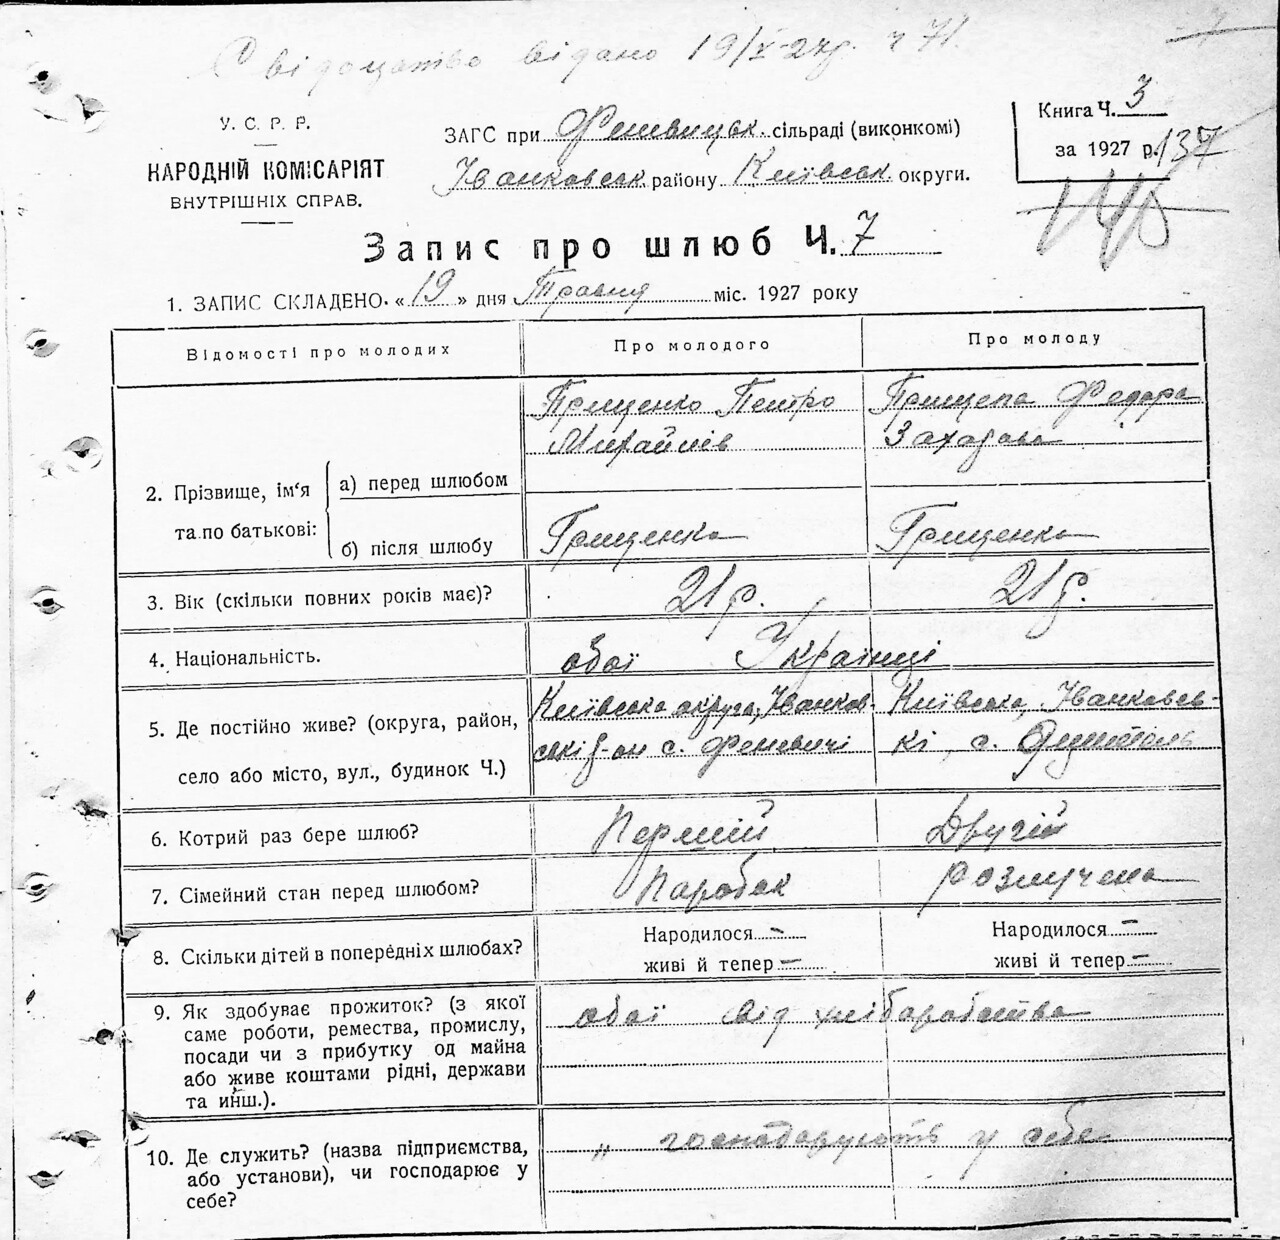 Свідоцтво видано 19/V-27р. Ч 71.
У. С. Р. Р.
НАРОДНІЙ КОМІСАРІЯТ
ВНУТРІШНІХ СПРАВ.
ЗАГС при Феневицьк. сільраді (виконкомі)
Іванковськ району Київськ округи.
Книга Ч. 3
за 1927 р. 137
Запис про шлюб Ч. 7
1. ЗАПИС СКЛАДЕНО. « 19 » дня Травня міс. 1927 року
Відомості про молодих
Про молодого
Про молоду
2. Прізвище, ім‘я та по батькові:
а) перед шлюбом
Грищенко Петро
Михайлів
Прищепа Федора
Захарова
б) після шлюбу
Грищенко
Грищенко
3. Вік (скільки повних років має)?
21 р.
21 р.
4. Національність.
обоі Украінці
5. Де постійно живе? (округа, район,
село або місто, вул., будинок Ч.)
Київська округа, Іванков-
ські р-он с. Феневичі
Київська, Іванковсь-
кі, с.
6. Котрий раз бере шлюб?
Перший
Другій
7. Сімейний стан перед шлюбом?
Паробок
розлучена
8. Скільки дітей в попередніх шлюбах?
Народилося –
живі й тепер –
Народилося –
живі й тепер –
9. Як здобуває прожиток? (з якої
саме роботи, ремества, промислу,
посади чи з прибутку од майна
або живе коштами рідні, держави
та инш.).
обоі від хліборобства
10. Де служить? (назва підприємства,
або установи), чи господарює у
себе?
„ господарують у себе